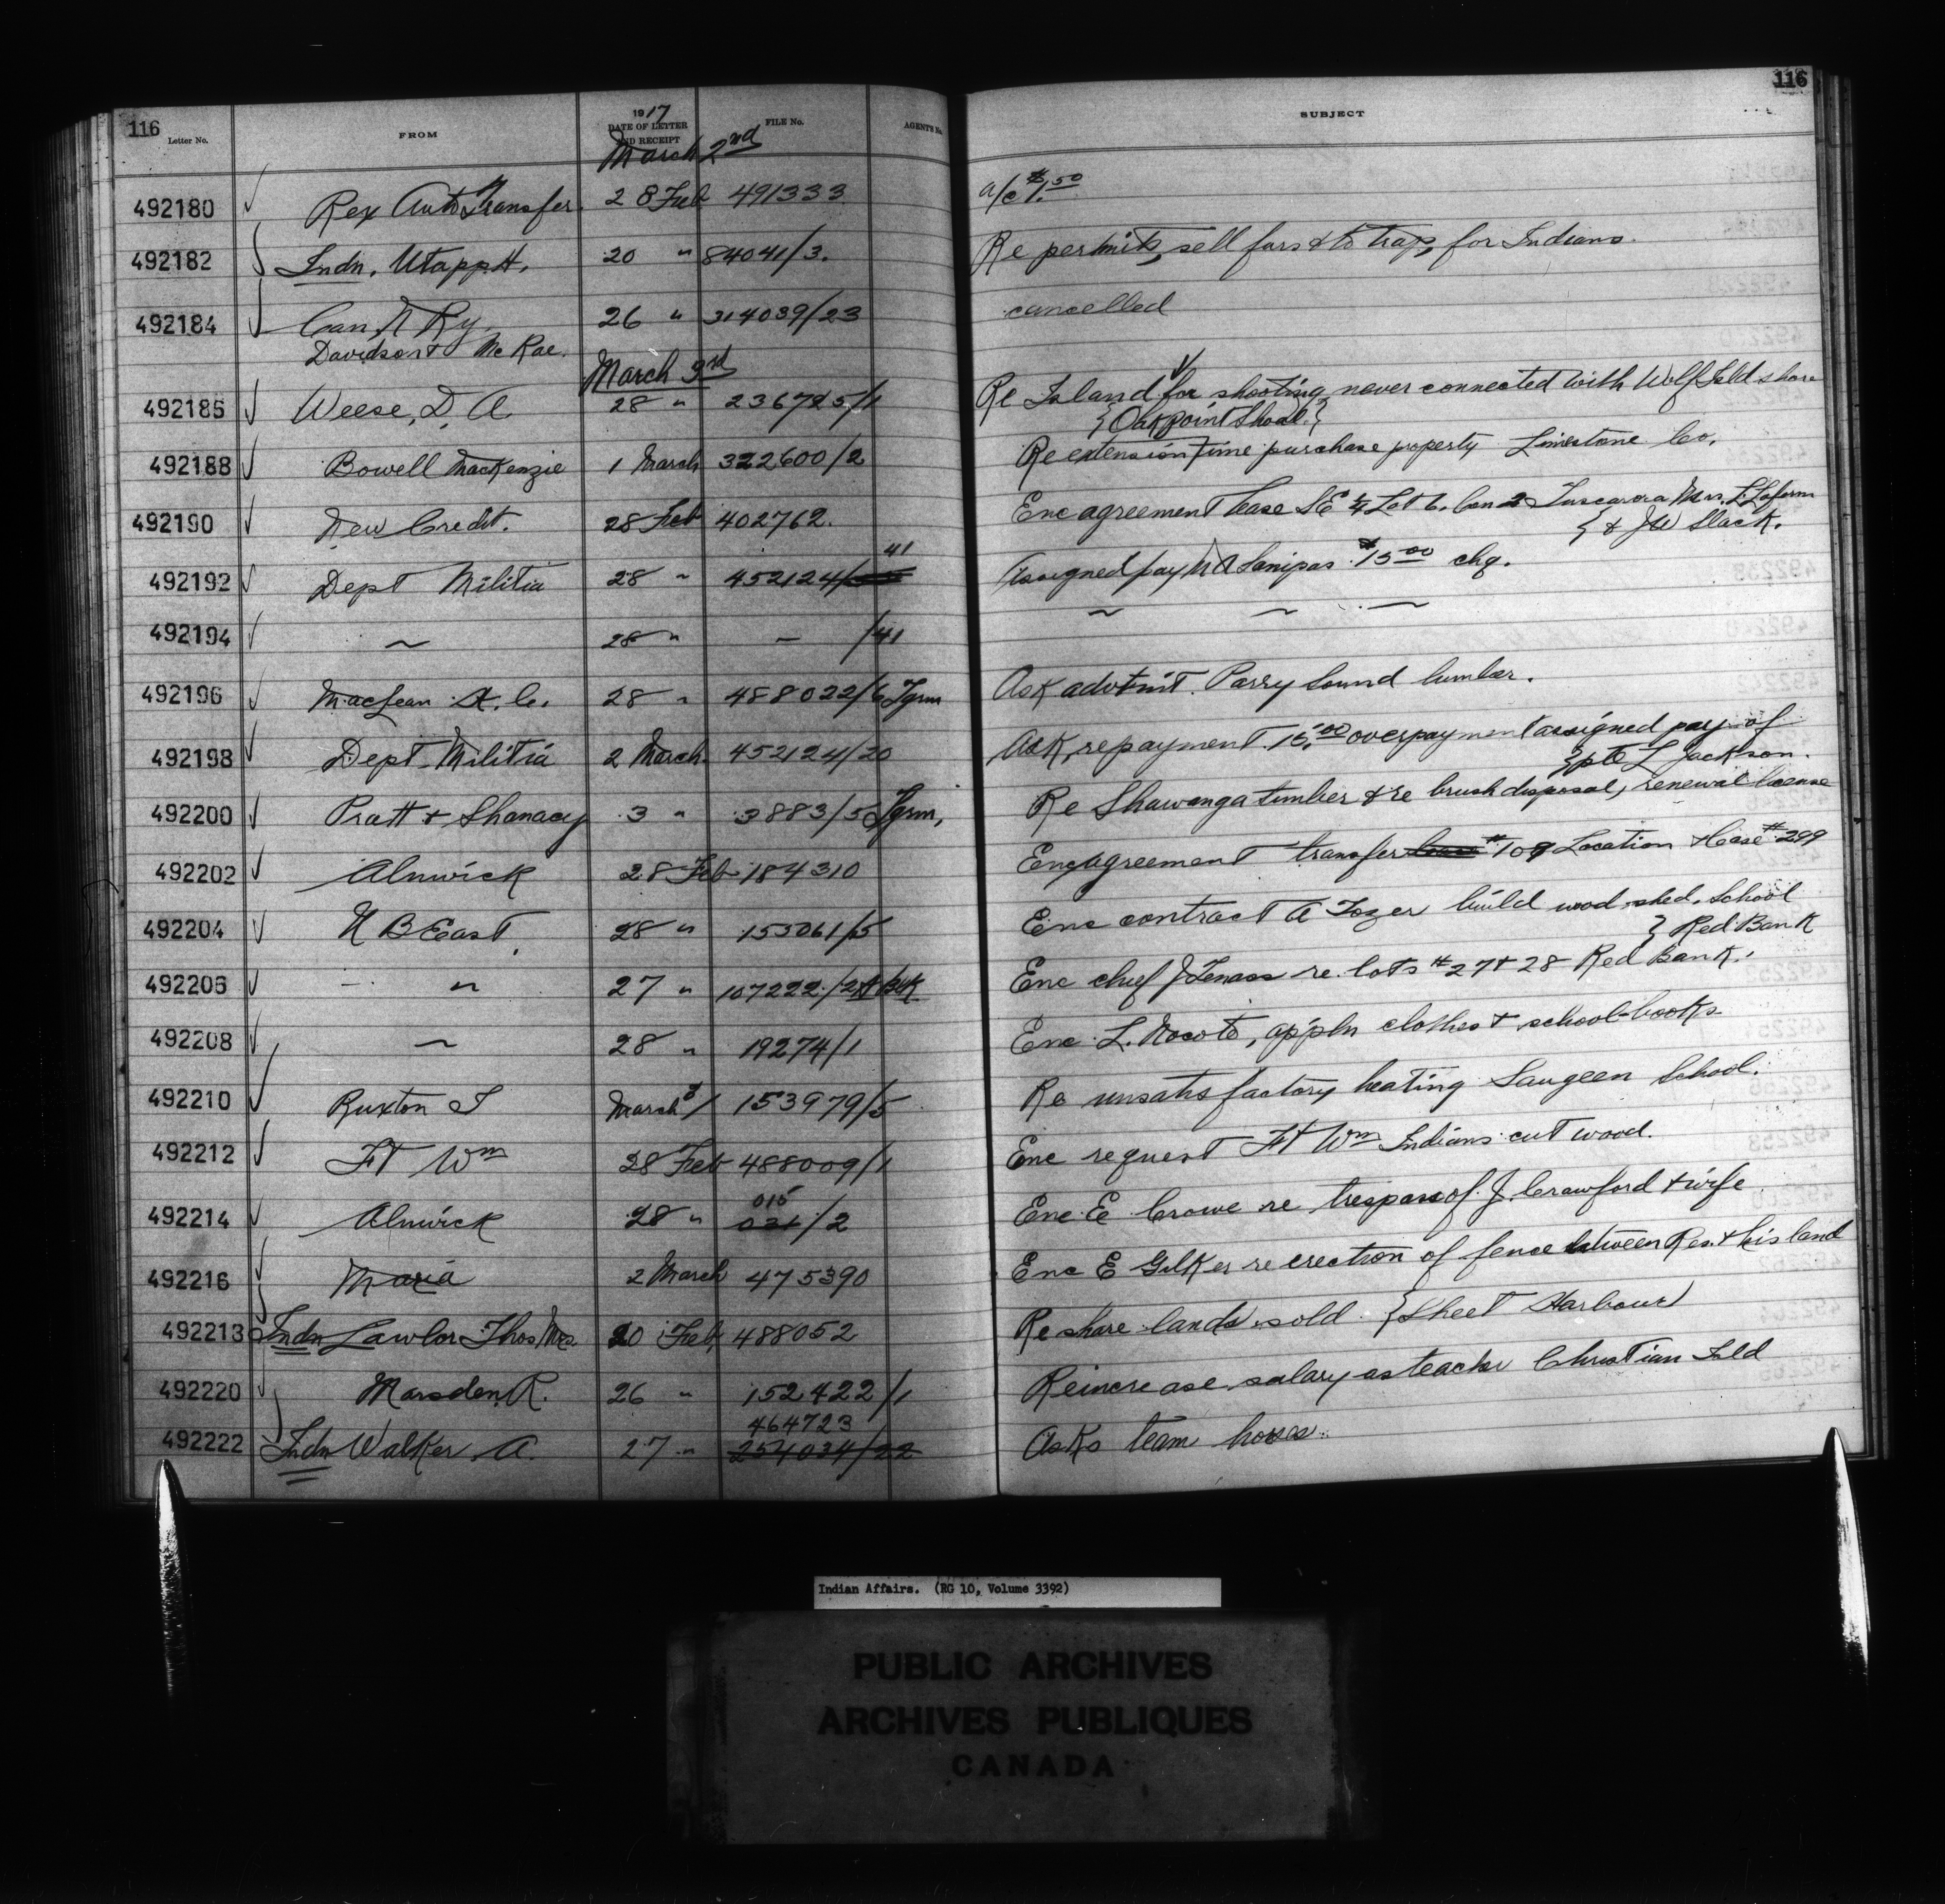 116
116
Letter No. FROM 1917 DATE OF LETTER AND RECEIPT FILE No. AGENT'S No. SUBJECT
March 2nd
492180 Rex Auto Transfer. 28 Feb 491333 a/c $1.50
492182 Indn. Utapp H. 20 " 84041/3. Re permits, sell furs & to trap, for Indians.
492184 Can. N Ry. 26 " 314039/23 cancelled
Davidson & McRae.
March 3rd
492186 Weese, D. A. 28 " 236725/1 Re Island for shooting never connected with Wolf Isld shore
{Oak point Shoal.}
492188 Bowell MacKenzie 1 March 322600/2 Re extension time purchase property Limestone Co.
492190 New Credit. 28 Feb 402762. Enc agreement lease SE 1/4 Lot 6. Con 2 Tuscarora Mrs. L. Laform
} & JW Slack.
492192 Dept Militia 28 " 452124/41 Assigned pay Sanipas $15.00 chq.
492194 ~ 28 " - /41 ~ ~ ~
492196 MacLean H. C. 28 " 488022/6 Tgrm Ask advtmt. Parry Sound lumber.
492198 Dept. Militia 2 March. 452124/20 Ask, repayment 15.00 overpayment assigned pay of
}pte L Jackson.
492200 Pratt & Shanacy 3 " 3883/5 Tgrm, Re Shawanga timber & re brush disposal, renewal license
492202 Alnwick 28 Feb 184310 Enc agreement transfer lease #109 Location & lease #299
492204 N B East. 28 " 153061/5 Enc contract A Tozer build wood-shed. School
} Red Bank
492206 - " 27 " 107222/ Enc chief J Tenass re lots #27 & 28 Red Bank.
492208 ~ 28 " 19274/1 Enc L. Nocoto, appln clothes & school-books
492210 Ruxton T March 1 153979/5 Re unsatisfactory heating Saugeen School.
492212 Ft Wm 28 Feb 488009/1 Enc request Ft Wm Indians cut wood.
492214 Alnwick 28 " 015 021/2 Enc E Crowe re trespass of J Crawford & wife
492216 Maria 2 March 475390 Enc E Gilker re erection of fence between Res. & his land
492218 Indn Lawlor Thos Mrs. 20 Feb 488052 Re share lands sold. {Sheet Harbour}
492220 Marsden, R. 26 " 152422/1 Re increase salary as teacher Christian Isld
492222 Indn Walker, A. 27 " 464723 254034/22 Asks team horses.
Indian Affairs. (RG 10, Volume 3392)
PUBLIC ARCHIVES
ARCHIVES PUBLIQUES
CANADA